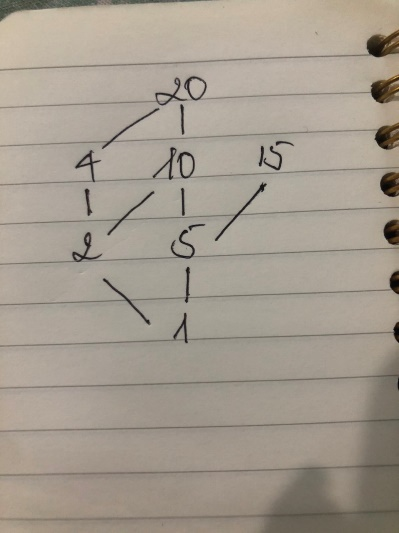 20
4 10 15
2 5
1